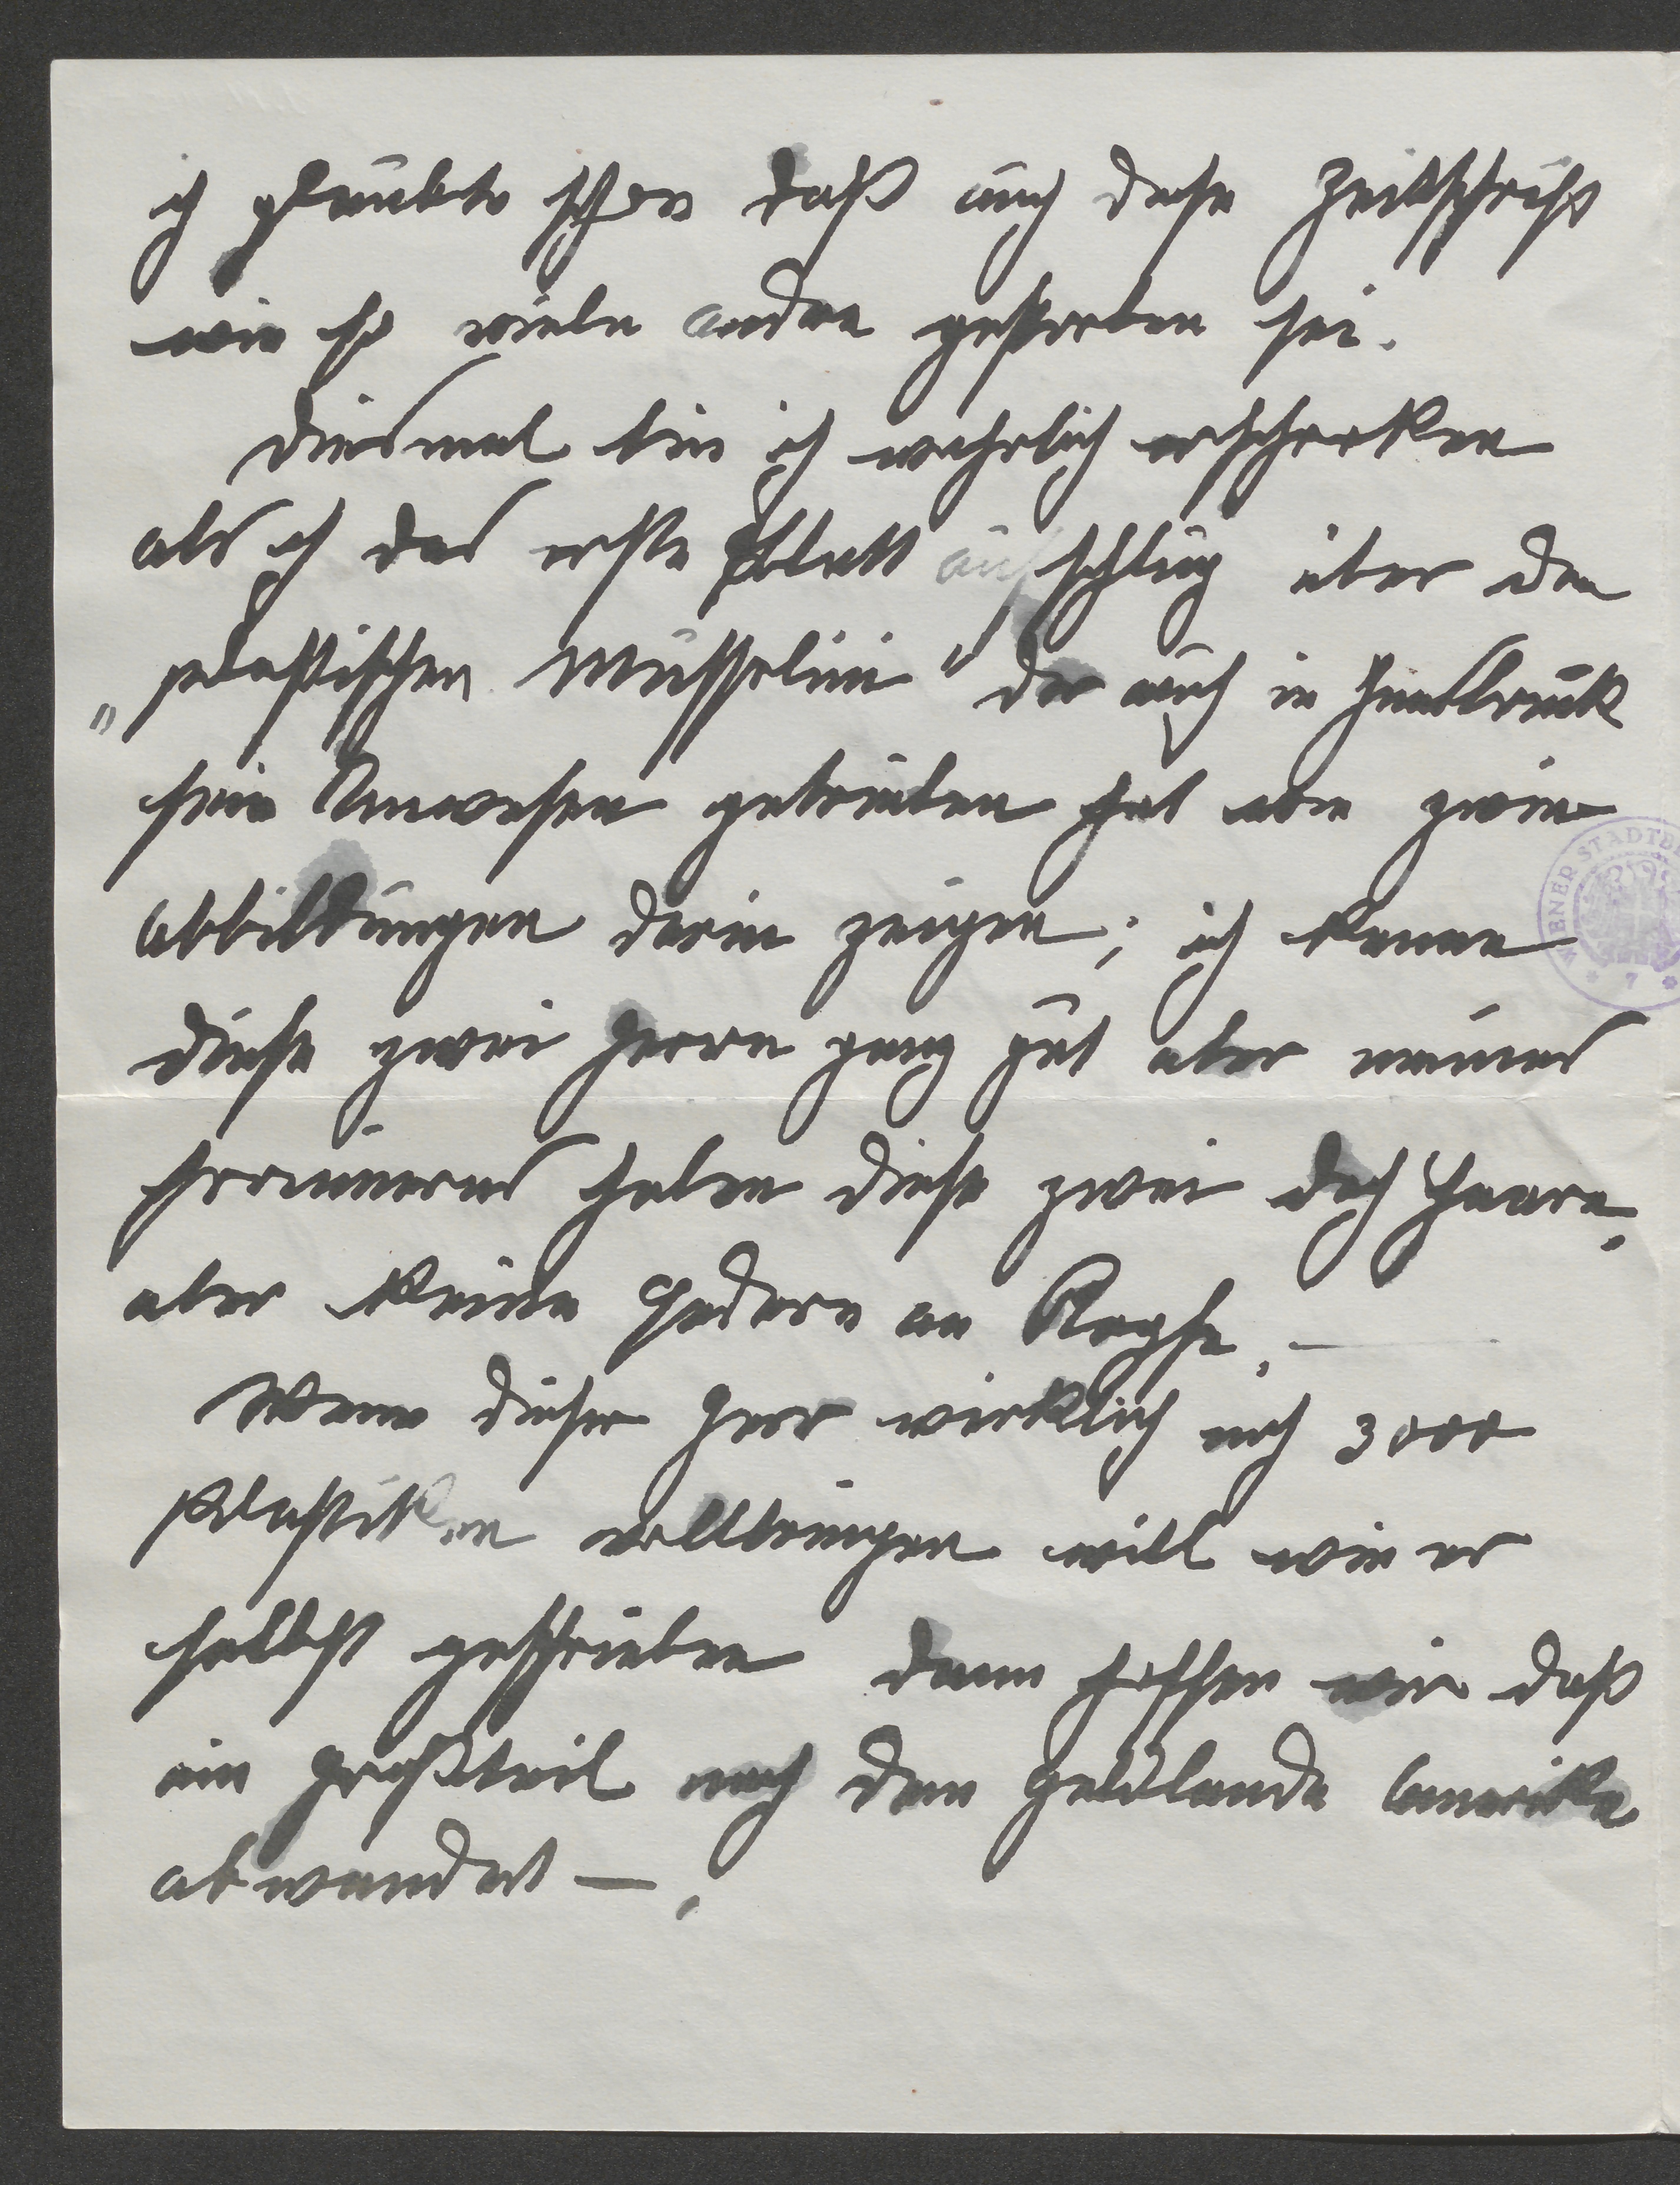 ich glaubte schon daß auch diese Zeitschrift
wie so viele andere gestorben sei.
Diesmal bin ich wahrlich erschrocken
als ich das erste Blatt aufschlug über den
„plastischen Mussolini" der auch in Innsbruck
sein Unwesen getrieben hat wie zwei
Abbildungen darin zeigen; ich kenne
diese zwei Herrn ganz gut aber meines
Erinnerns haben diese zwei doch Haare,
aber keine Federn am Kopfe. —
Wenn dieser Herr wirklich noch 3000
Plastiken vollbringen will wie er
selbst geschrieben dann hoffen wir daß
ein Großteil nach dem Geldlande Amerika
abwandert — .
WIENER STADTB
* 7 *